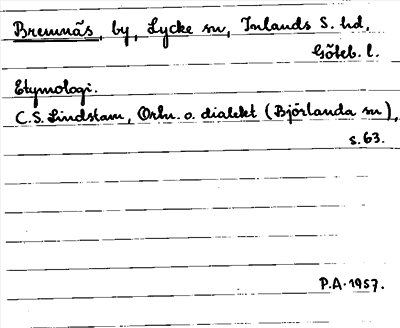 Bremnäs, by, Lycke sn, Inlands S. hd,
Göteb. l.
Etymologi.
C.S. Lindstam, Ortn. o. dialekt (Björlanda sn),
s. 63.
P.A. 1957.